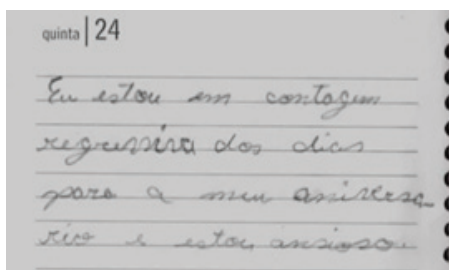 quinta | 24
Eu estou em contagem
regressiva dos dias
para o meu aniversa-
rio e estou ansioso